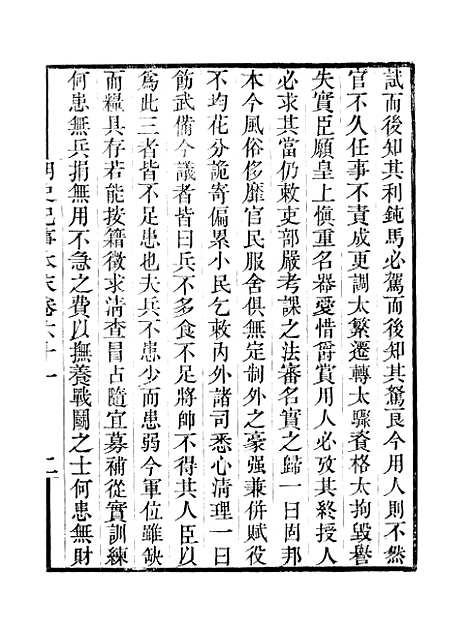 試而後知其利鈍馬必駕而後知其駑良今用人則不然
官不久任事不責成更調太繁遷轉太驟資格太拘毀譽
失實臣願皇上愼重名器愛惜爵賞用人必攷其終授人
必求其當仍敕吏部嚴考課之法審名實之歸一曰固邦
本今風俗侈靡官民服舍俱無定制外之豪强兼併賦役
不均花分詭寄偏累小民乞敕內外諸司悉心淸理一曰
飭武備今議者皆曰兵不多食不足將帥不得其人臣以
爲此三者皆不足患也夫兵不患少而患弱今軍位雖缺
而糧具存若能按籍徵求淸查冒占隨宜募補從實訓練
何患無兵捐無用不急之費以撫養戰鬭之士何患無財
明史紀事本末卷六十一 二